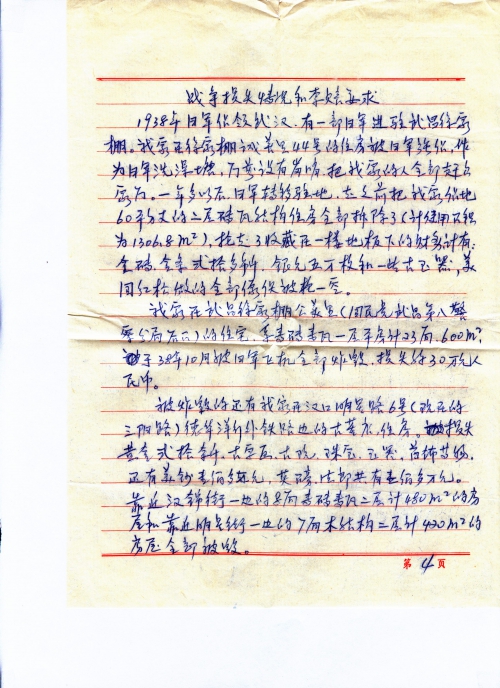 战争损失情况和索赔要求
1938年日军侵领武汉,有一部日军进驻武昌徐家
棚。我家在徐家棚诚善里44号的住房被日军强占,作
为日军洗澡塘,把我家的人全部赶出
家门。一年多以后,日军转移驻地,走之前把我家占地
60平方丈的二层砖瓦结构住房全部拆除了(计使用面积
为1306.8m²),抢走了收藏在一楼地板下的财务计有:
金砖、金条贰拾多斤,银元五万枚和一些古玉器,美
国红松做的全部傢俱被抢一空。
我家在武昌徐家棚公义里(国民党武昌第八警
察分局后面)的住宅,系青砖青瓦一层平房计23间,600m²,
于38年10月被日军飞机全部炸毁,损失约30万元人
民币。
被炸毁的还有我家在汉口明星路6号(现在的
三阳路)德华洋行外铁路边的大菜水住房。损失
黄金贰拾条,古字画、珠宝、玉器、首饰
还有美钞壹佰多万元,英磅、法郎共有壹佰多万元。
靠近汉锦街一边的8间青砖青瓦二层计480m²的房
屋和靠近明星街一边的7间木结构二层计420m²的
房屋全部被毁。
第4页